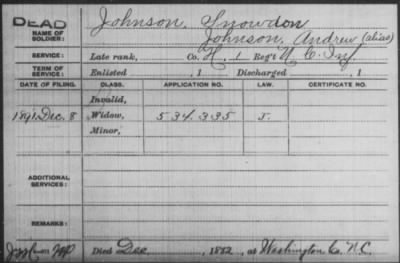 DEAD
NAME OF SOLDIER: Johnson, Snowdon
Johnson, Andrew (alias)
SERVICE: Late rank, Co. H, 1 Reg't N. C. Inf.
TERM OF SERVICE: Enlisted , 1 Discharged , 1
DATE OF FILING. CLASS. APPLICATION NO. LAW. CERTIFICATE NO.
Invalid,
1891, Dec. 8 Widow, 534.335 J.
Minor,
ADDITIONAL SERVICES:
REMARKS:
Died Dec , 1882, at Washington Co. N.C.